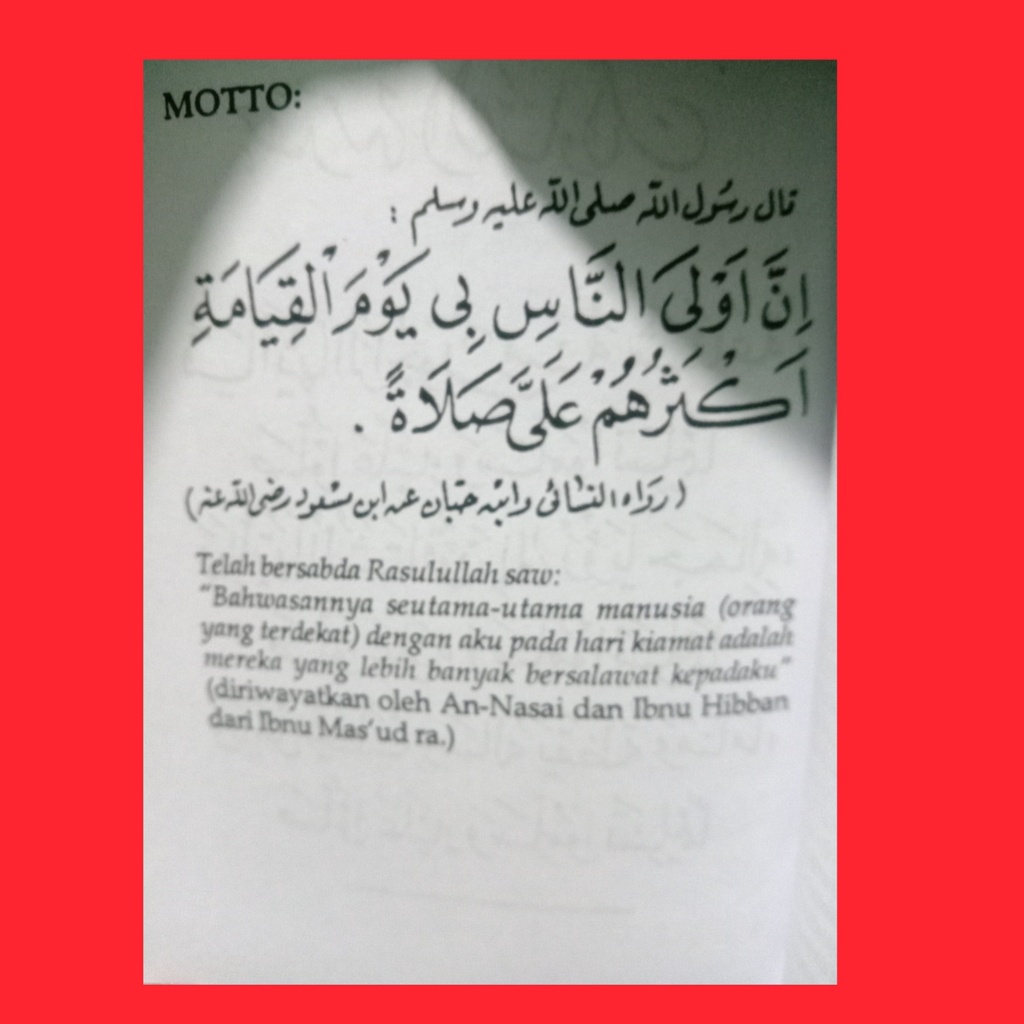 MOTTO:
قال رسول الله صلى الله عليه وسلم :
اِنَّ اَوْلَى النَّاسِ بِى يَوْمَ الْقِيَامَةِ
اَكْثَرُهُمْ عَلَىَّ صَلَاةً .
(رواه النسائى وابنه حبّان عن ابن مسعود رضى الله عنه)
Telah bersabda Rasulullah saw:
"Bahwasannya seutama-utama manusia (orang
yang terdekat) dengan aku pada hari kiamat adalah
mereka yang lebih banyak bersalawat kepadaku"
(diriwayatkan oleh An-Nasai dan Ibnu Hibban
dari Ibnu Mas'ud ra.)